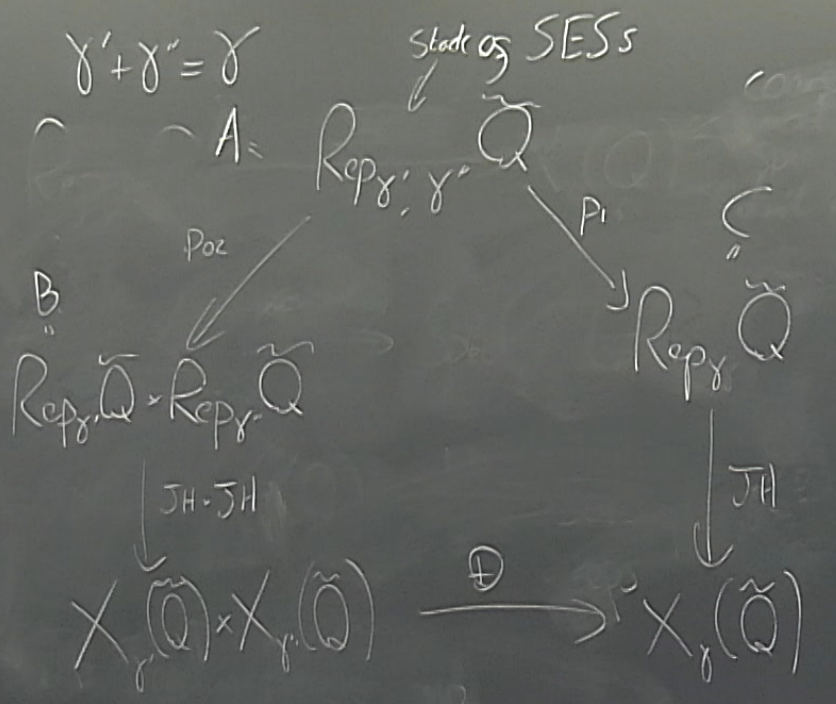 γ' + γ" = γ
Stack of SESs
A = Rep_{γ', γ"} Q̃
p02
p1
B
"
C
"
Rep_{γ'} Q̃ × Rep_{γ"} Q̃
Rep_γ Q̃
JH × JH
JH
⊕
X_{γ'}(Q̃) × X_{γ"}(Q̃)
X_γ(Q̃)